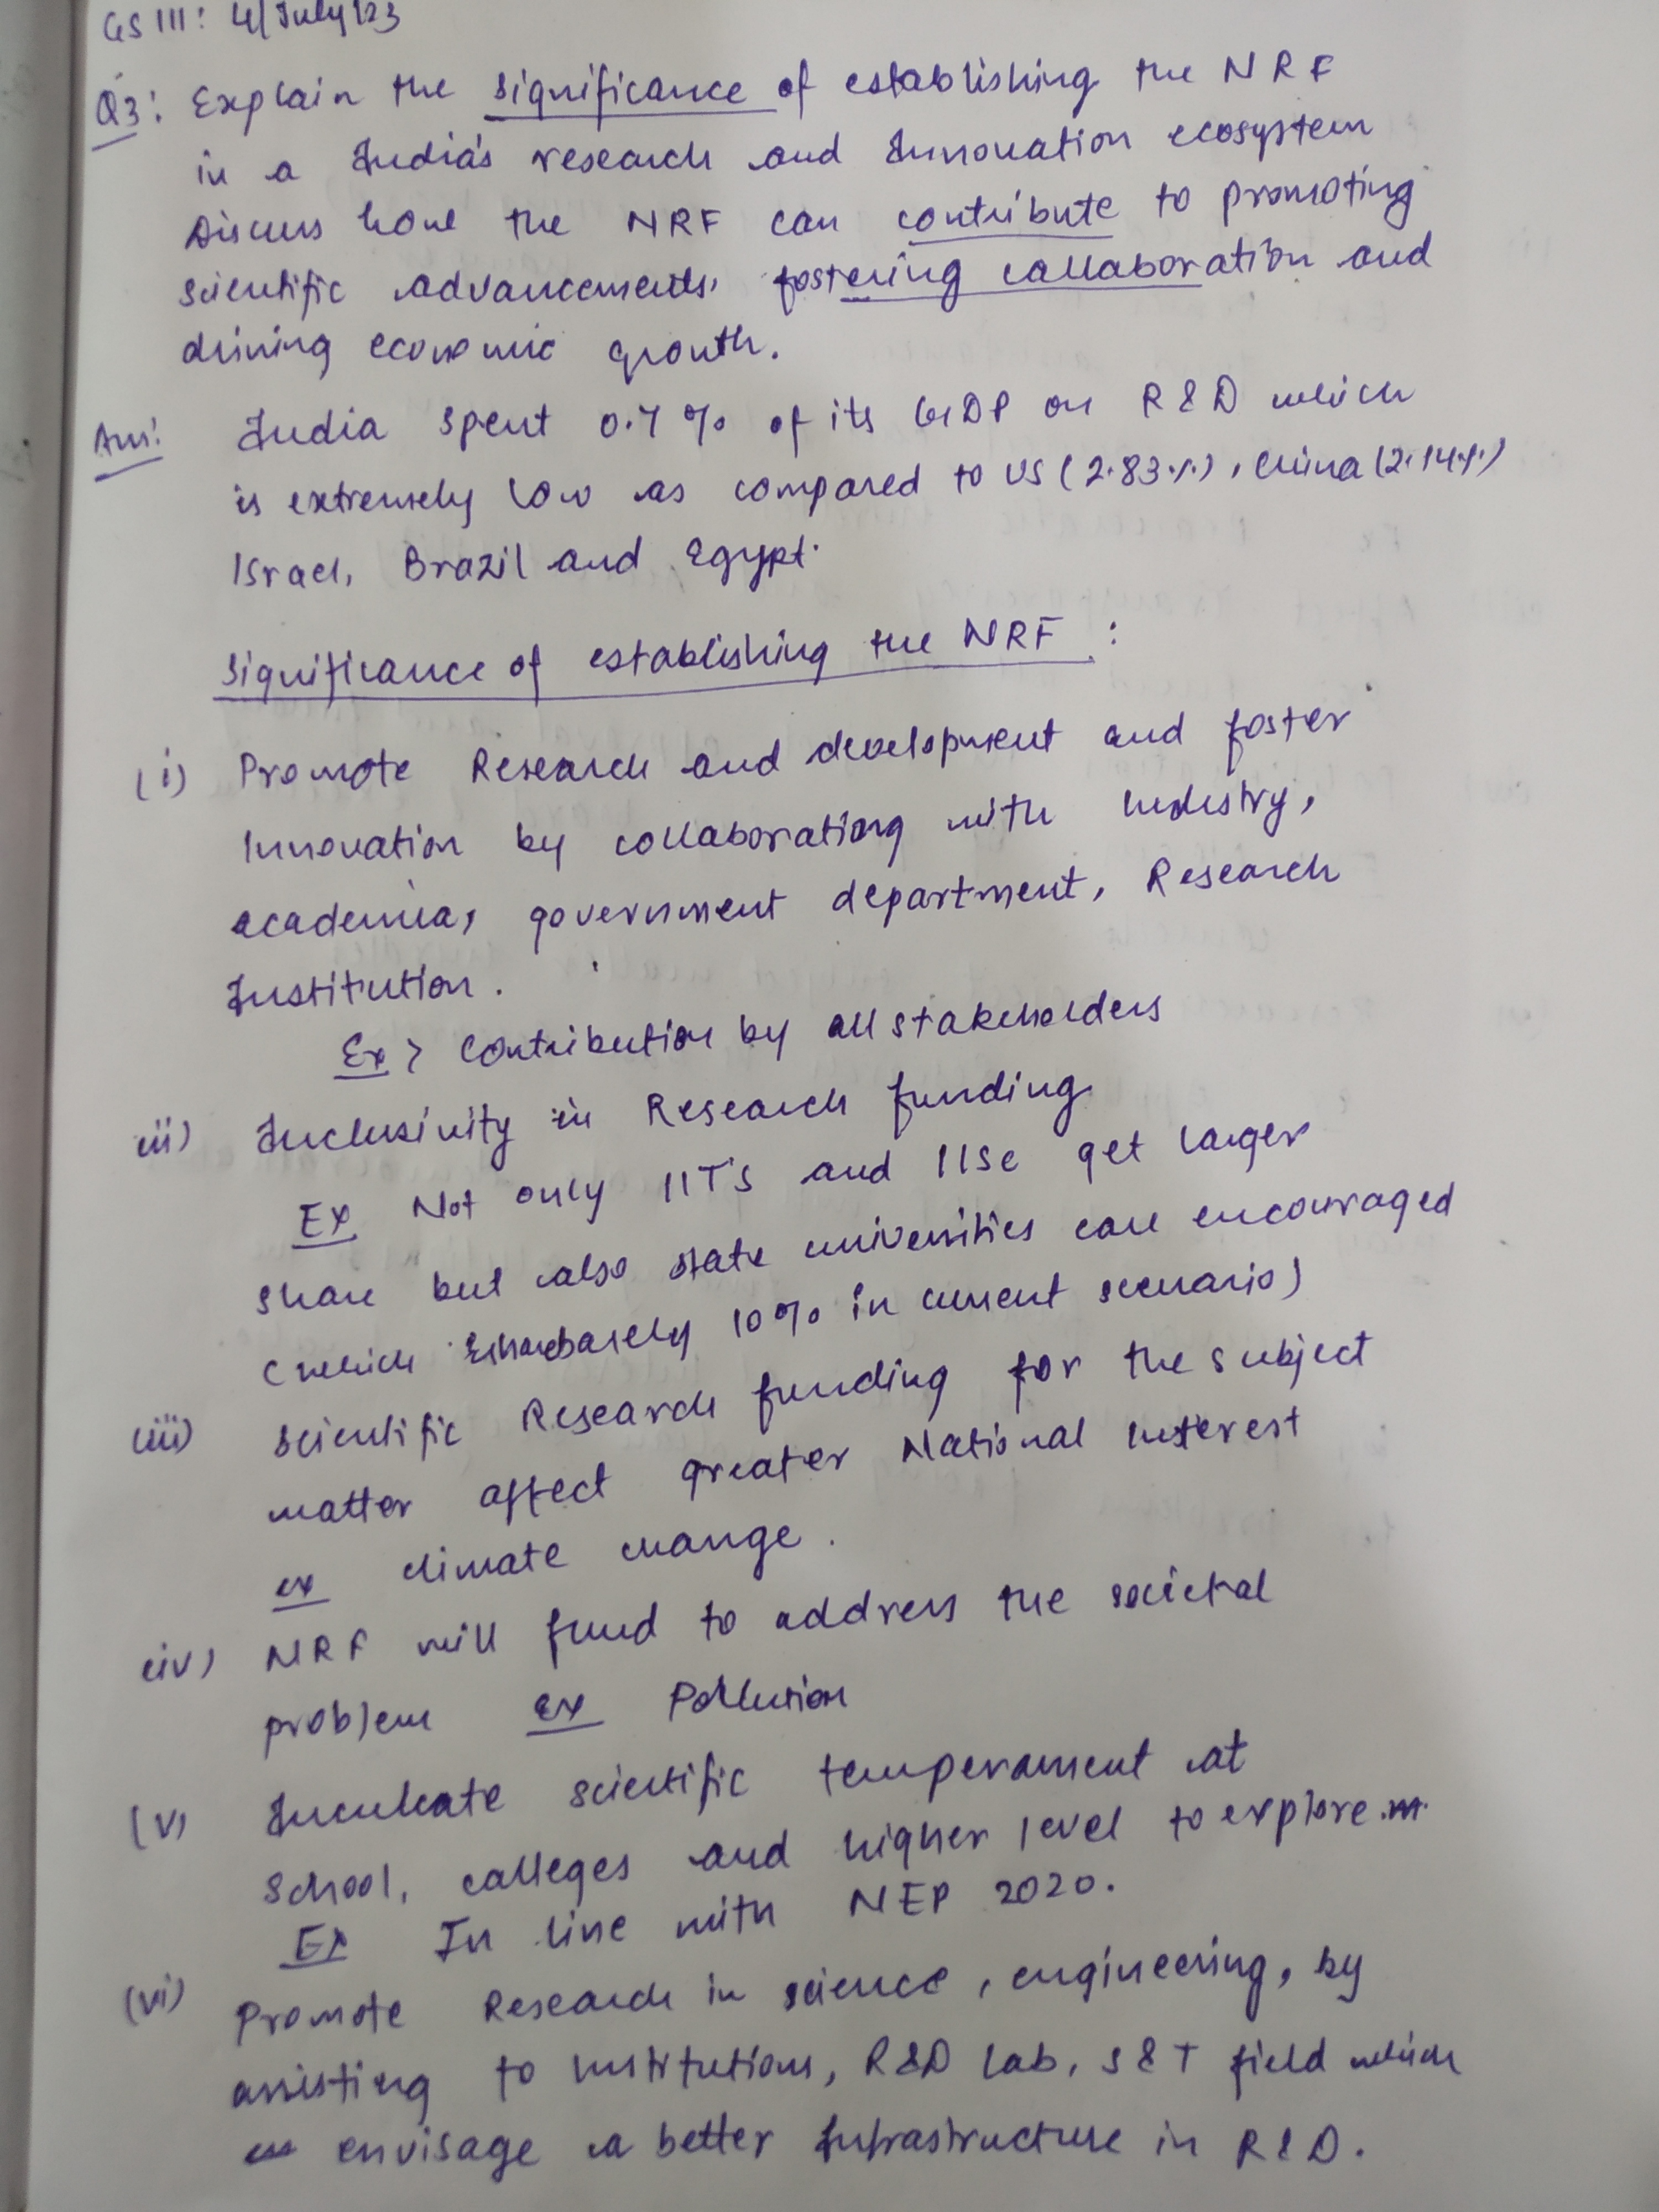 GS III: 4/July/23
Q3: Explain the significance of establishing the NRF
in a India's research and Innovation ecosystem
Discuss how the NRF can contribute to promoting
scientific advancements, fostering collaboration and
driving economic growth.
Ans: India spent 0.7% of its GDP on R&D which
is extremely low as compared to US (2.83%), China (2.14%)
Israel, Brazil and Egypt.
Significance of establishing the NRF :
(i) Promote Research and development and foster
Innovation by collaborationg with Industry,
academia, government department, Research
Institution.
Ex > Contribution by all stakeholders
(ii) Inclusivity in Research funding
Ex Not only IIT's and IISc get larger
share but also state universities can encouraged
(which barely 10% in current scenario)
(iii) Scientific Research funding for the subject
matter affect greater National interest
ex climate change.
(iv) NRF will fund to address the societal
problem ex Pollution
(v) Inculcate scientific temperament at
School, colleges and higher level to explore
Ex In line with NEP 2020.
(vi) Promote Research in science, engineering, by
assisting to institutions, R&D lab, S&T field which
envisage a better Infrastructure in R&D.